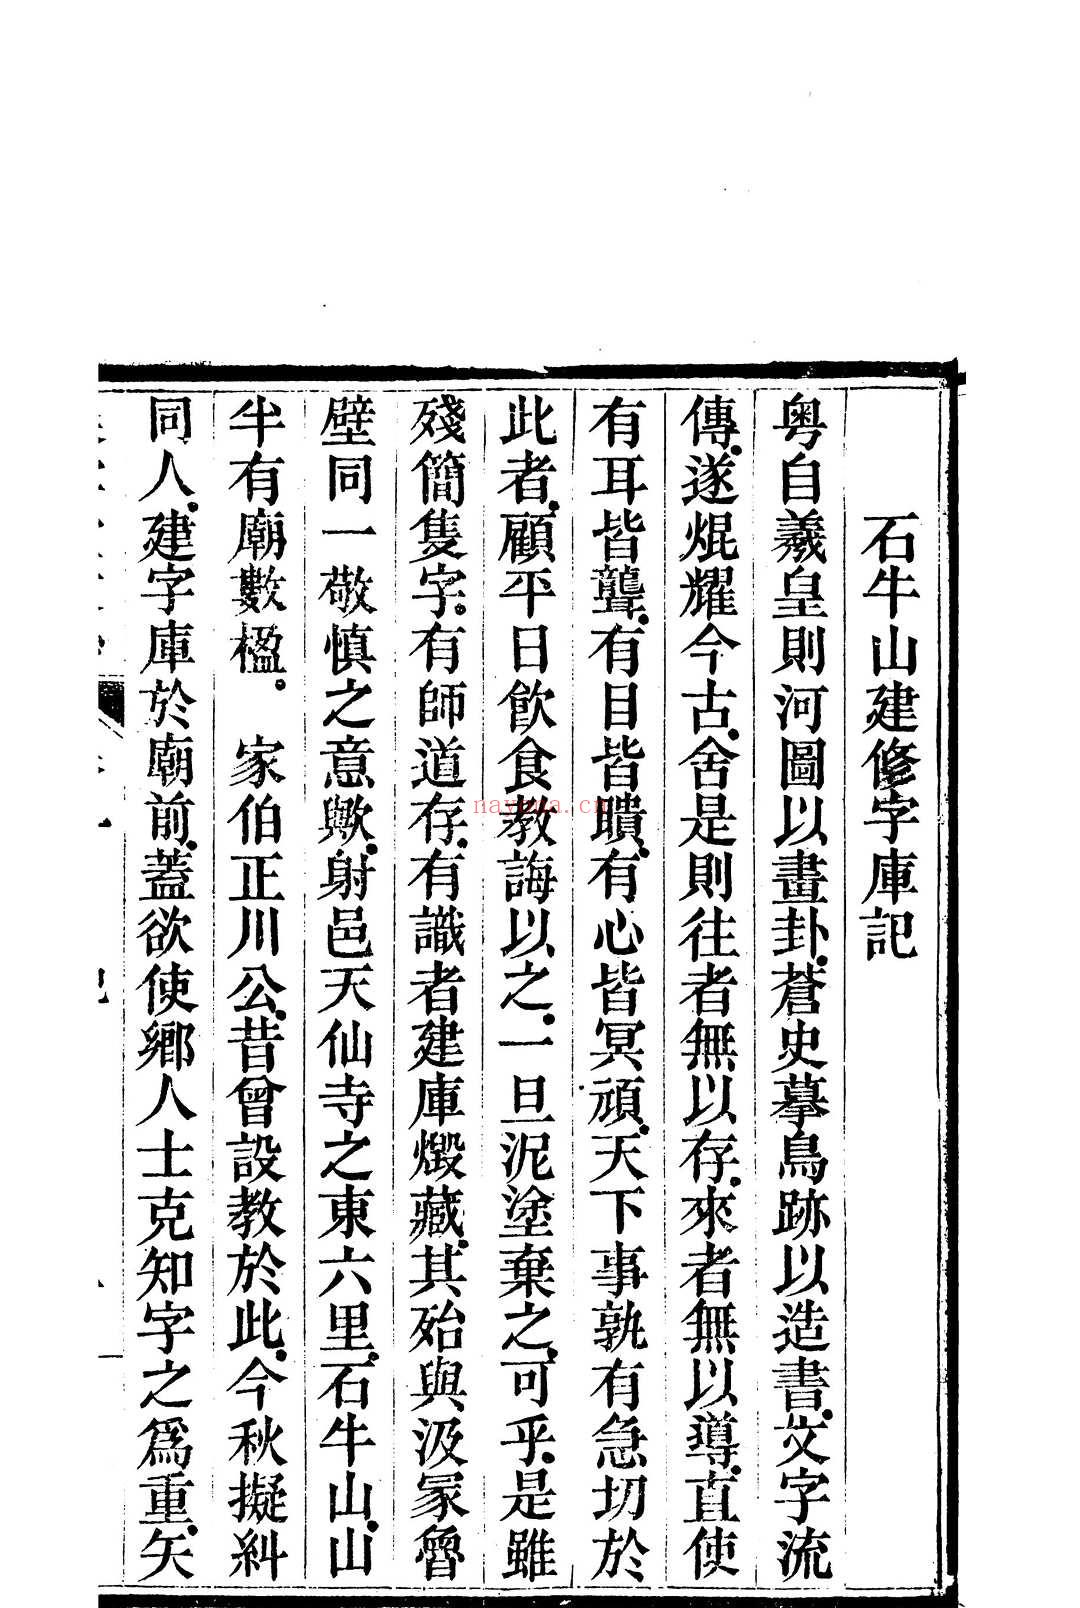 石牛山建修字庫記
粵自羲皇則河圖以畫卦蒼史摹鳥跡以造書文字流
傳遂焜耀今古舍是則往者無以存來者無以導直使
有耳皆聾有目皆瞶有心皆冥頑天下事孰有急切於
此者顧平日飲食教誨以之一旦泥塗棄之可乎是雖
殘簡隻字有師道存有識者建庫燬藏其殆與汲冢魯
壁同一敬慎之意歟射邑天仙寺之東六里石牛山山
半有廟數楹。家伯正川公昔曾設教於此今秋擬糾
同人建字庫於廟前蓋欲使鄉人士克知字之為重矢
nayona.cn